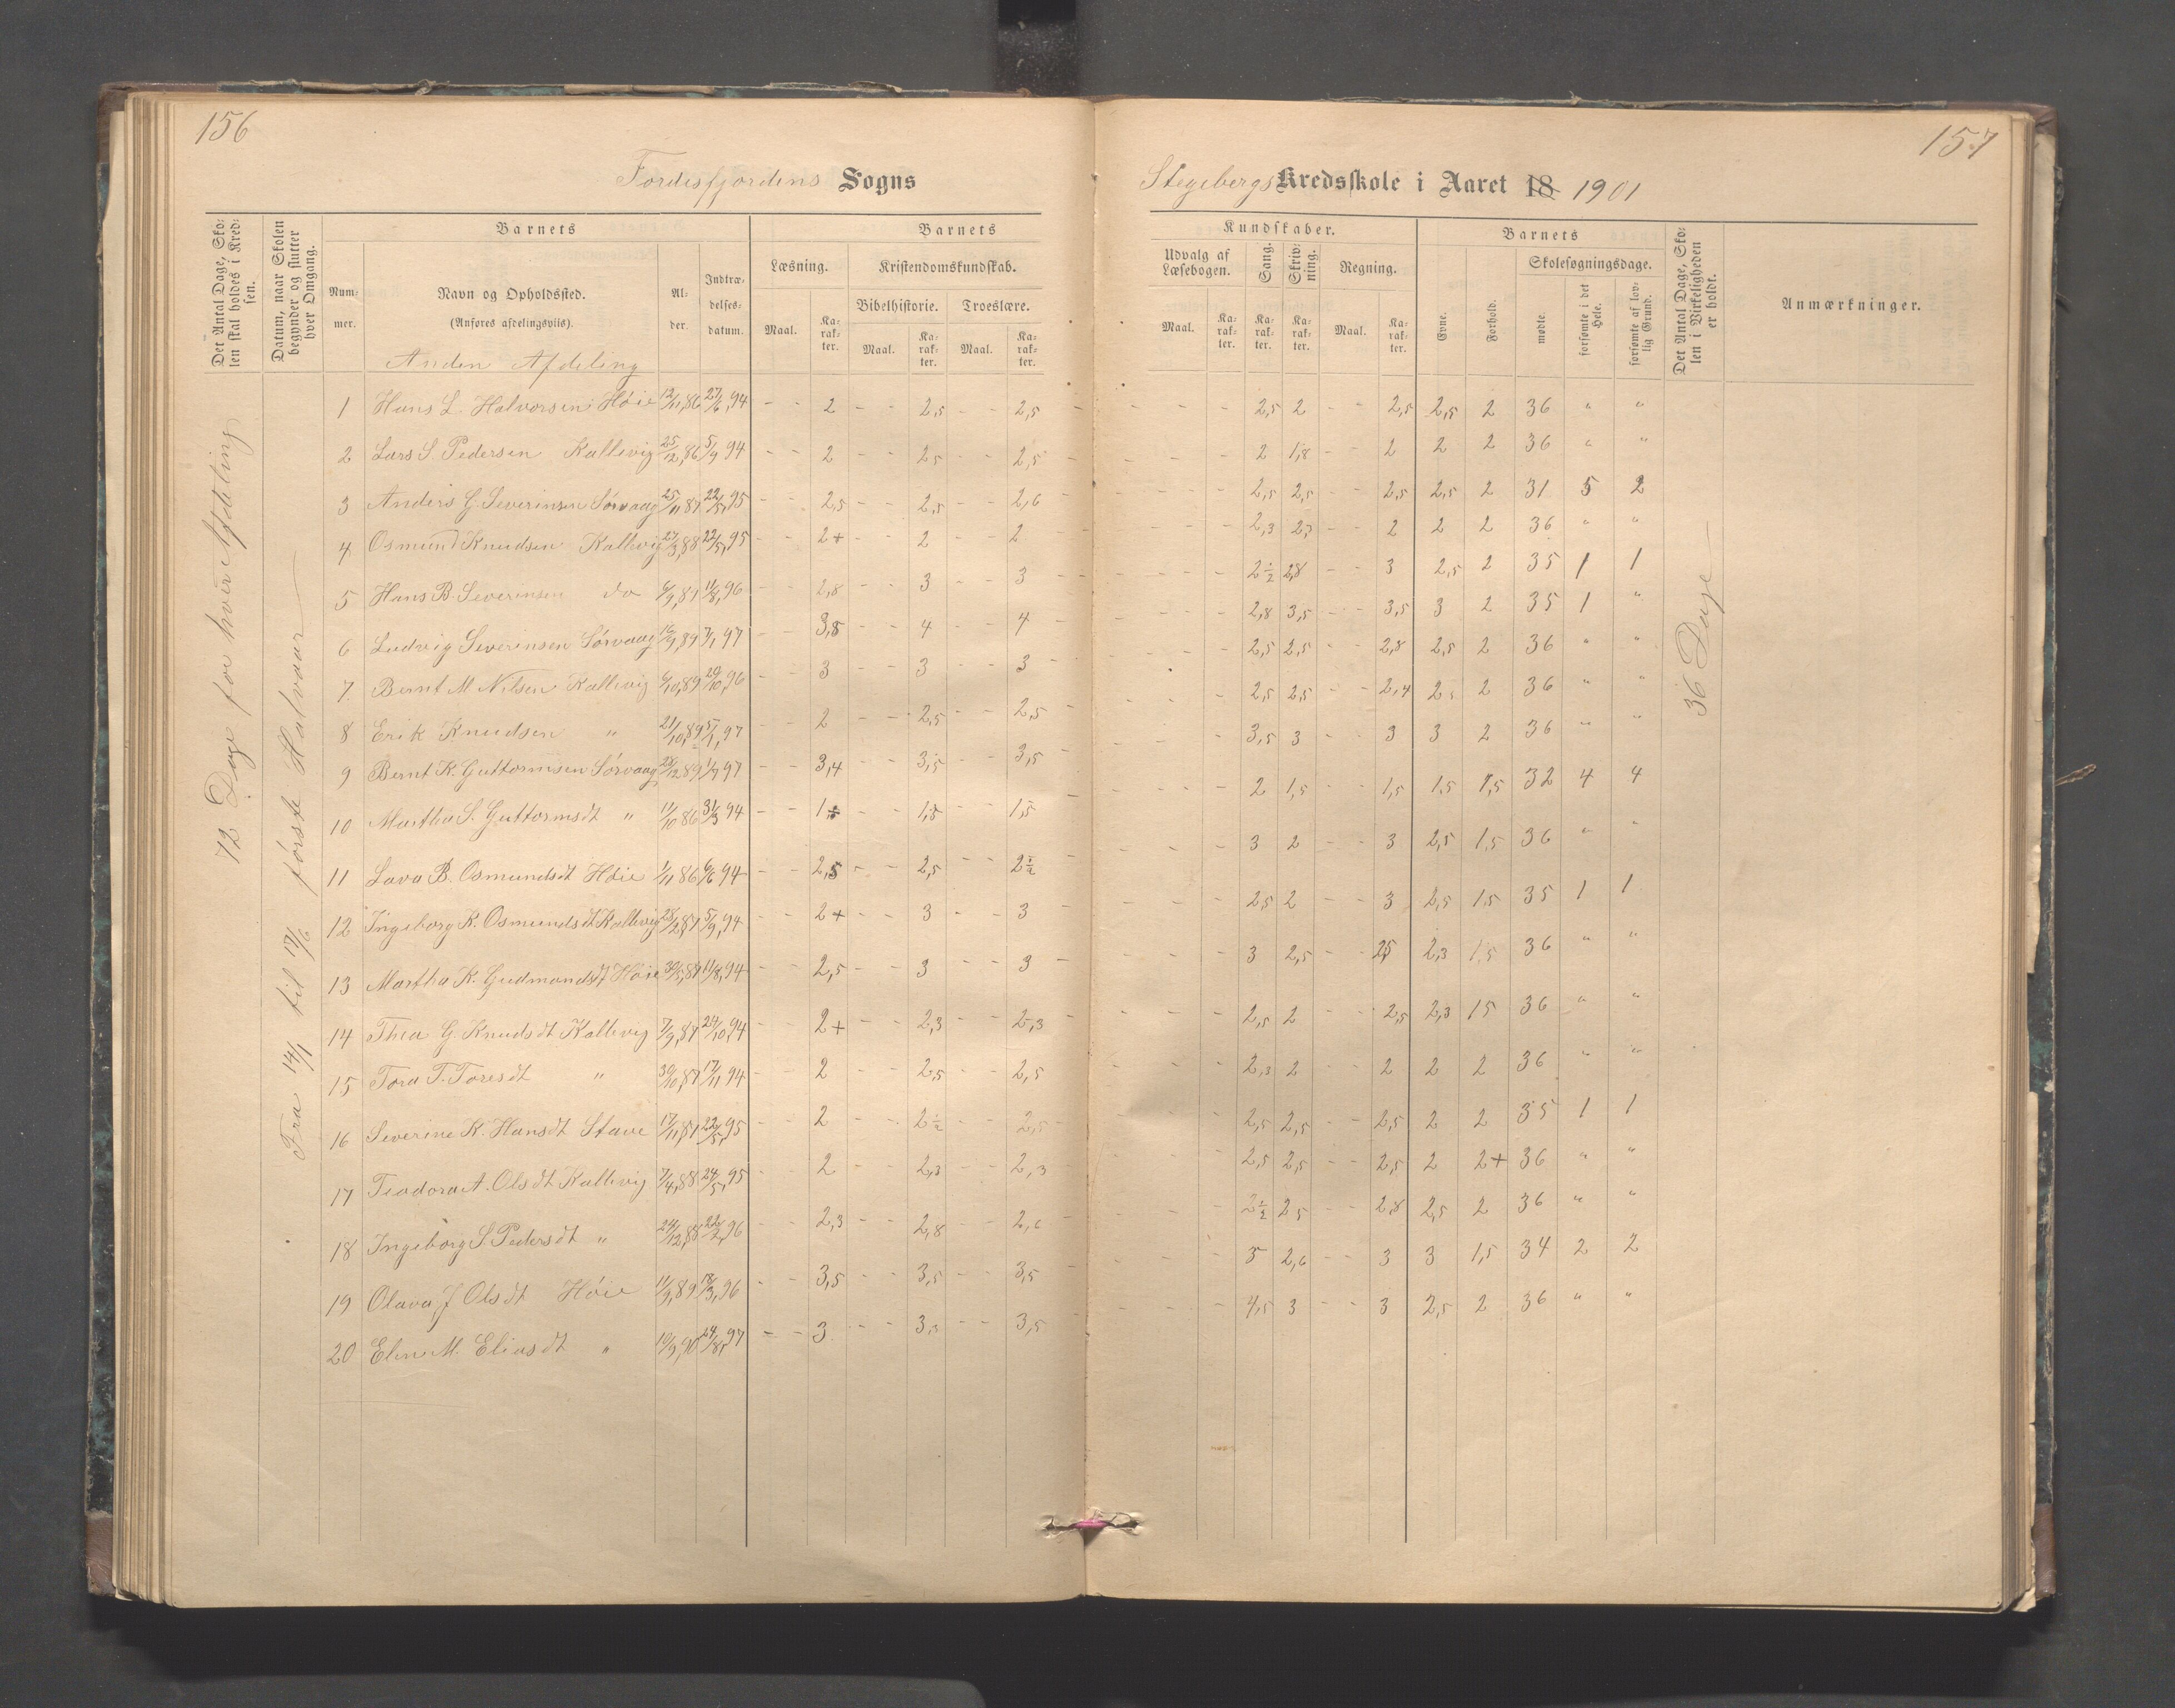 156
Fordesfjordens Sogns
Det Antal Dage, Sko-
len skal holdes i Kred-
sen.
Datum, naar Skolen
begynder og slutter
hver Omgang.
Barnets
Num-
mer.
Navn og Opholdssted.
(Anføres afdelingsviis).
Al-
der.
Indtræ-
delses-
datum.
Barnets
Læsning.
Maal.
Ka-
rak-
ter.
Kristendomskundskab.
Bibelhistorie.
Troeslære.
Maal.
Ka-
rak-
ter.
Maal.
Ka-
rak-
ter.
Anden Afdeling
72 Dage for hver Afdeling
Fra 14/1 til 17/6 første Halvaar
1 Hans L. Halvorsen Høie 12/11,86 27/6,94 - - 2 - - 2,5 - - 2,5
2 Lars S. Pedersen Kallevig 25/12,86 5/9 94 - - 2 - - 2,5 - - 2,5
3 Anders G. Severinsen Sørvaag 25/11 87 22/5,95 - - 2,5 - - 2,5 - - 2,6
4 Osmund Knudsen Kallevig 27/3,88 22/5,95 - - 2+ - - 2 - - 2
5 Hans B. Severinsen do 6/9,87 11/8,96 - - 2,8 - - 3 - - 3
6 Ludvig Severinsen Sørvaag 16/9,89 7/1 97 - - 3,8 - - 4 - - 4
7 Bernt M. Nilsen Kallevig 6/10,89 20/10,96 - - 3 - - 3 - - 3
8 Erik Knudsen " 21/10,89 5/1,97 - - 2 - - 2,5 - - 2,5
9 Bernt K. Guttormsen Sørvaag 28/12 89 1/7 97 - - 3,4 - - 3,5 - - 3,5
10 Martha S. Guttormsdt " 11/10 86 31/3 94 - - - - 1,5 - - 1,5
11 Lava B. Osmundsdt Høie 1/11 86 6/6 94 - - 2,5 - - 2,5 - - 2½
12 Ingeborg K. Osmundsdt Kallevig 28/2,87 5/9,94 - - 2+ - - 3 - - 3
13 Martha K. Gudmundsdt Høie 30/5,87 11/8,94 - - 2,5 - - 3 - - 3
14 Thea G. Knudsdt Kallevig 7/9,87 24/10,94 - - 2+ - - 2,3 - - 2,3
15 Tora T. Toresdt " 30/10,87 17/11 94 - - 2 - - 2,5 - - 2,5
16 Severine K. Hansdt Stave 17/11,87 22/5,95 - - 2 - - 2½ - - 2,5
17 Teodora A. Olsdt Kallevig 7/4,88 24/5,95 - - 2 - - 2,3 - - 2,3
18 Ingeborg S. Pedersdt " 24/12,88 22/2,96 - - 2,3 - - 2,8 - - 2,6
19 Olava J Olsdt Høie 11/9,89 18/3,96 - - 3,5 - - 3,5 - - 3,5
20 Elen M. Eliasdt " 10/9,90 24/8,97 - - 3 - - - - 3,5
157
Stegebergs Kredsskole i Aaret 18 1901
Kundskaber.
Udvalg af
Læsebogen.
Maal.
Ka-
rak-
ter.
Sang.
Ka-
rak-
ter.
Skriv-
ning.
Ka-
rak-
ter.
Regning.
Maal.
Ka-
rak-
ter.
Barnets
Evne.
Forhold.
Skolesøgningsdage.
mødte.
forsømte i det
Hele.
forsømte af lov-
lig Grund.
Det Antal Dage, Sko-
len i Virkeligheden
er holdt.
Anmærkninger.
- - - 2,5 2 - - 2,5 2,5 2 36 " "
- - - 2 1,8 - - 2 2 2 36 " "
- - - 2,5 2,5 - - 2,5 2,5 2 31 5 2
- - - 2,3 2,3 - - 2 2 2 36 " "
- - - 2½ 2,8 - - 3 2,5 2 35 1 1
- - - 2,8 3,5 - - 3,5 3 2 35 1 "
- - - 2,5 2,5 - - 2,8 2,5 2 36 " "
- - - 2,5 2,5 - - 2,4 2 36 " "
- - - 3,5 3 - - 3 3 2 36 " "
- - - 2 1,5 - - 1,5 1,5 1,5 32 4 4
- - - 3 2 - - 3 2,5 1,5 36 " "
- - - 2,5 2 - - 3 2,5 1,5 35 1 1
- - - 3 2,5 - - 2,5 2,3 1,5 36 " "
- - - 2,5 2 - - 2,5 2,3 15 36 " "
- - - 2,3 2 - - 2 2 2 36 " "
- - - 2,5 2,5 - - 2,5 2 2 35 1 1
- - - 2,5 2,5 - - 2,5 2 2+ 36 " "
- - - 2½ 2,5 - - 2,8 2,5 2 36 " "
- - - 2,6 - - 3 3 1,5 34 2 2
- - - 4,5 3 - - 3 2,5 2 36 " "
36 Dage